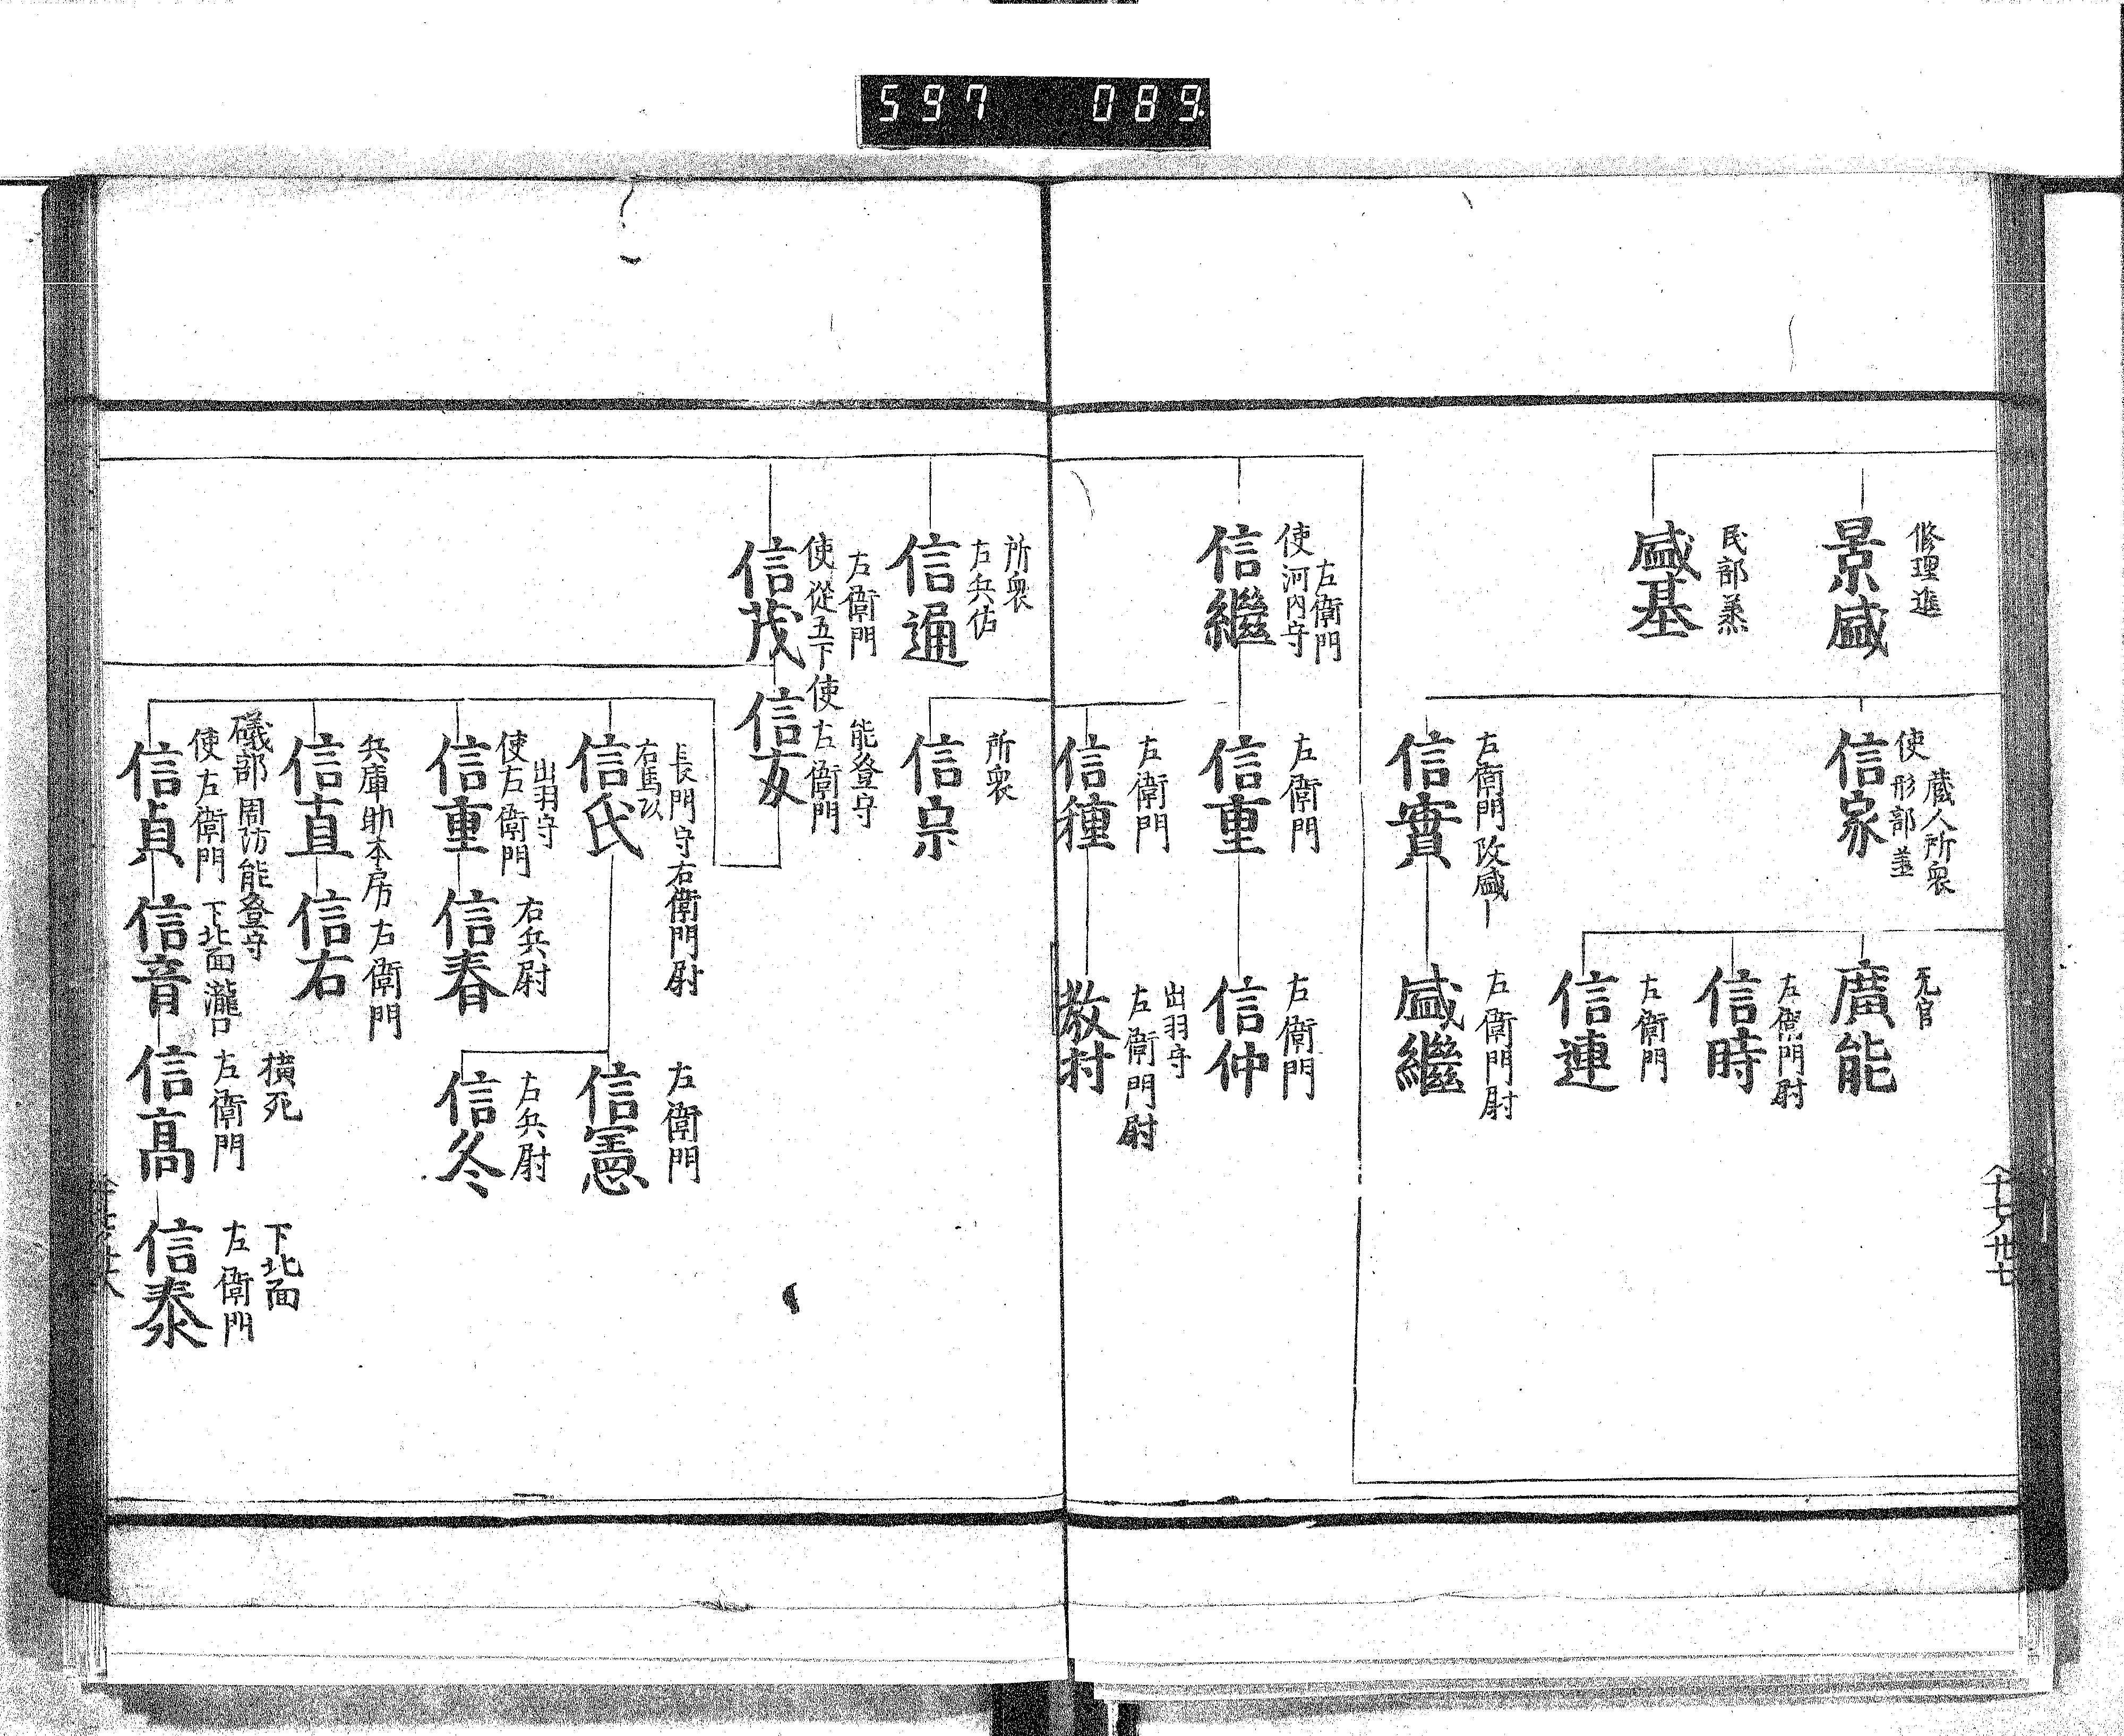 597 089
修理進
景盛
民部丞
盛基
蔵人所衆
使形部丞
信家
左衛門改盛
信實
无官
廣能
左衛門尉
信時
左衛門
信連
左衛門尉
盛繼
左衛門
使河内守
信繼
左衛門
信重
左衛門
信種
左衛門
信仲
出羽守
左衛門尉
教村
十七ノ廿七
所衆
左兵佐
信通
左衛門
使従五下
信茂
所衆
信宗
能登守
使左衛門
信友
長門守右衛門尉
右馬
信氏
出羽守
使左衛門
信重
兵庫助本房左衛門
信直
礒部周防能登守
使左衛門
信貞
右兵尉
信春
信右
下北面瀧口
信音
左衛門
信憲
右兵尉
信冬
横死
左衛門
信高
下北面
左衛門
信泰